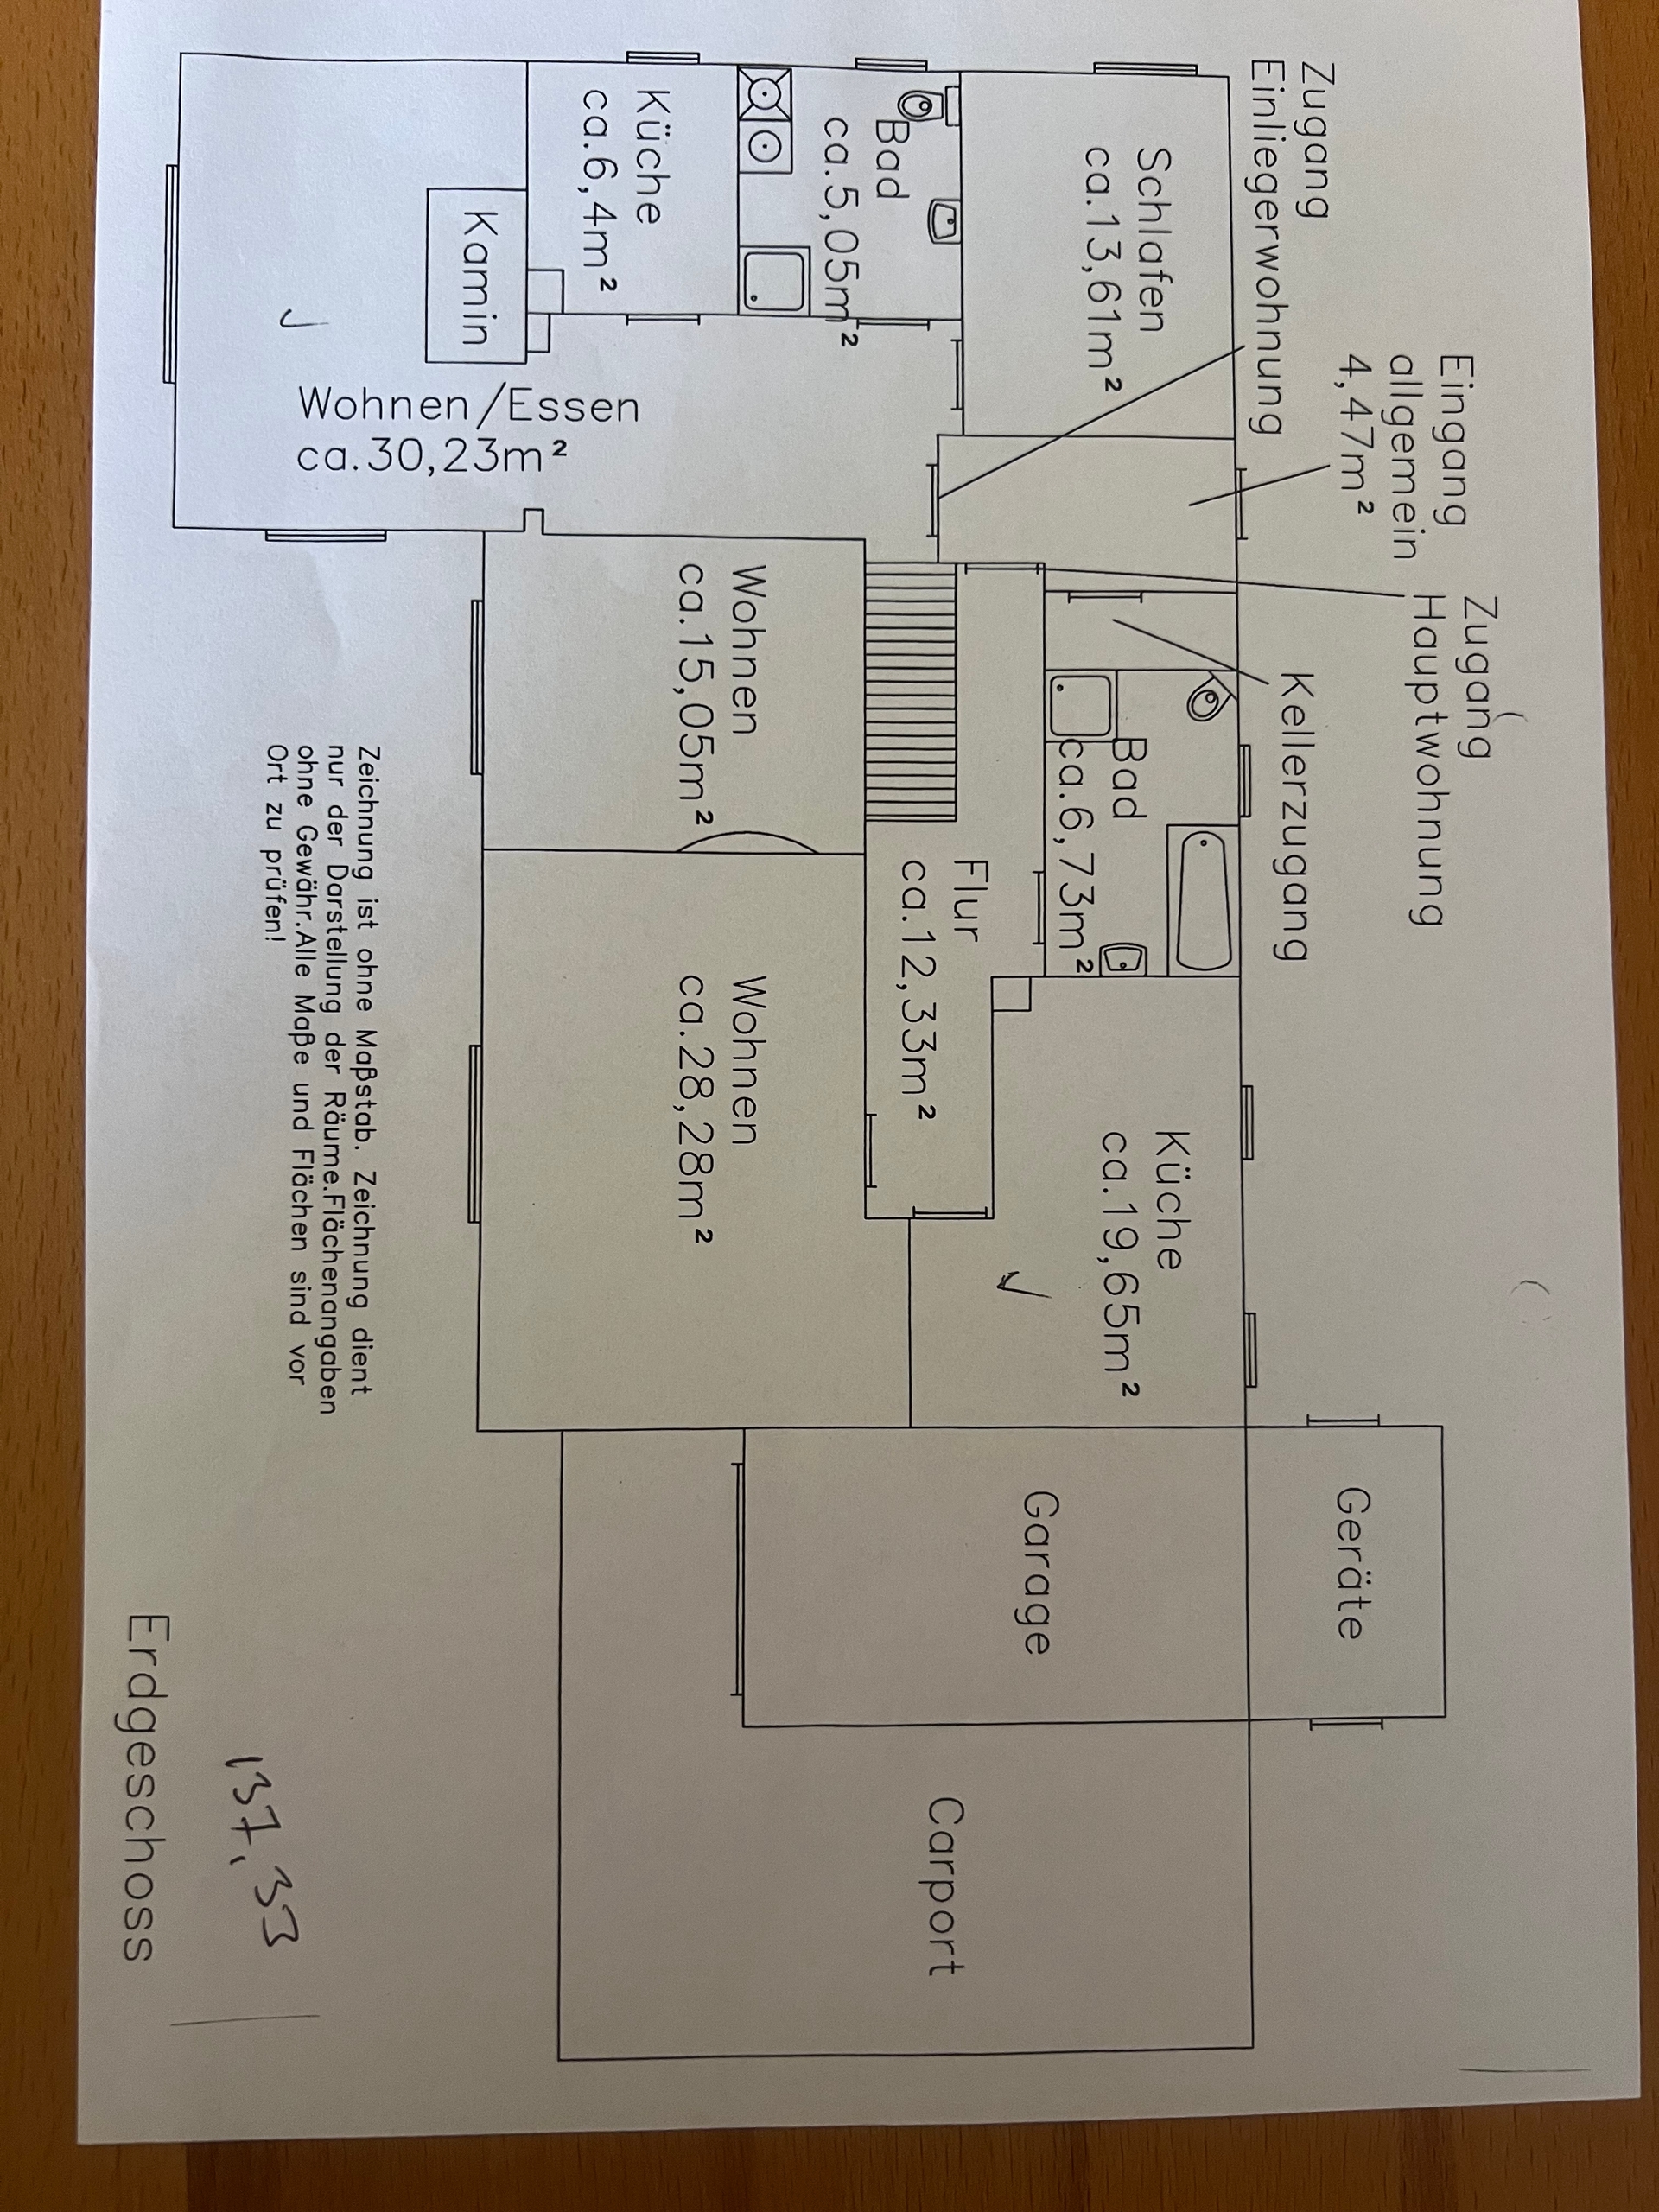 Zugang
Einliegerwohnung
Eingang
allgemein
4,47m²
Zugang
Hauptwohnung
Kellerzugang
Schlafen
ca.13,61m²
Bad
ca.5,05m²
Küche
ca.6,4m²
Kamin
Wohnen/Essen
ca.30,23m²
Bad
ca.6,73m²
Flur
ca.12,33m²
Wohnen
ca.15,05m²
Wohnen
ca.28,28m²
Küche
ca.19,65m²
Geräte
Garage
Carport
Zeichnung ist ohne Maßstab. Zeichnung dient
nur der Darstellung der Räume.Flächenangaben
ohne Gewähr.Alle Maße und Flächen sind vor
Ort zu prüfen!
137,33
Erdgeschoss